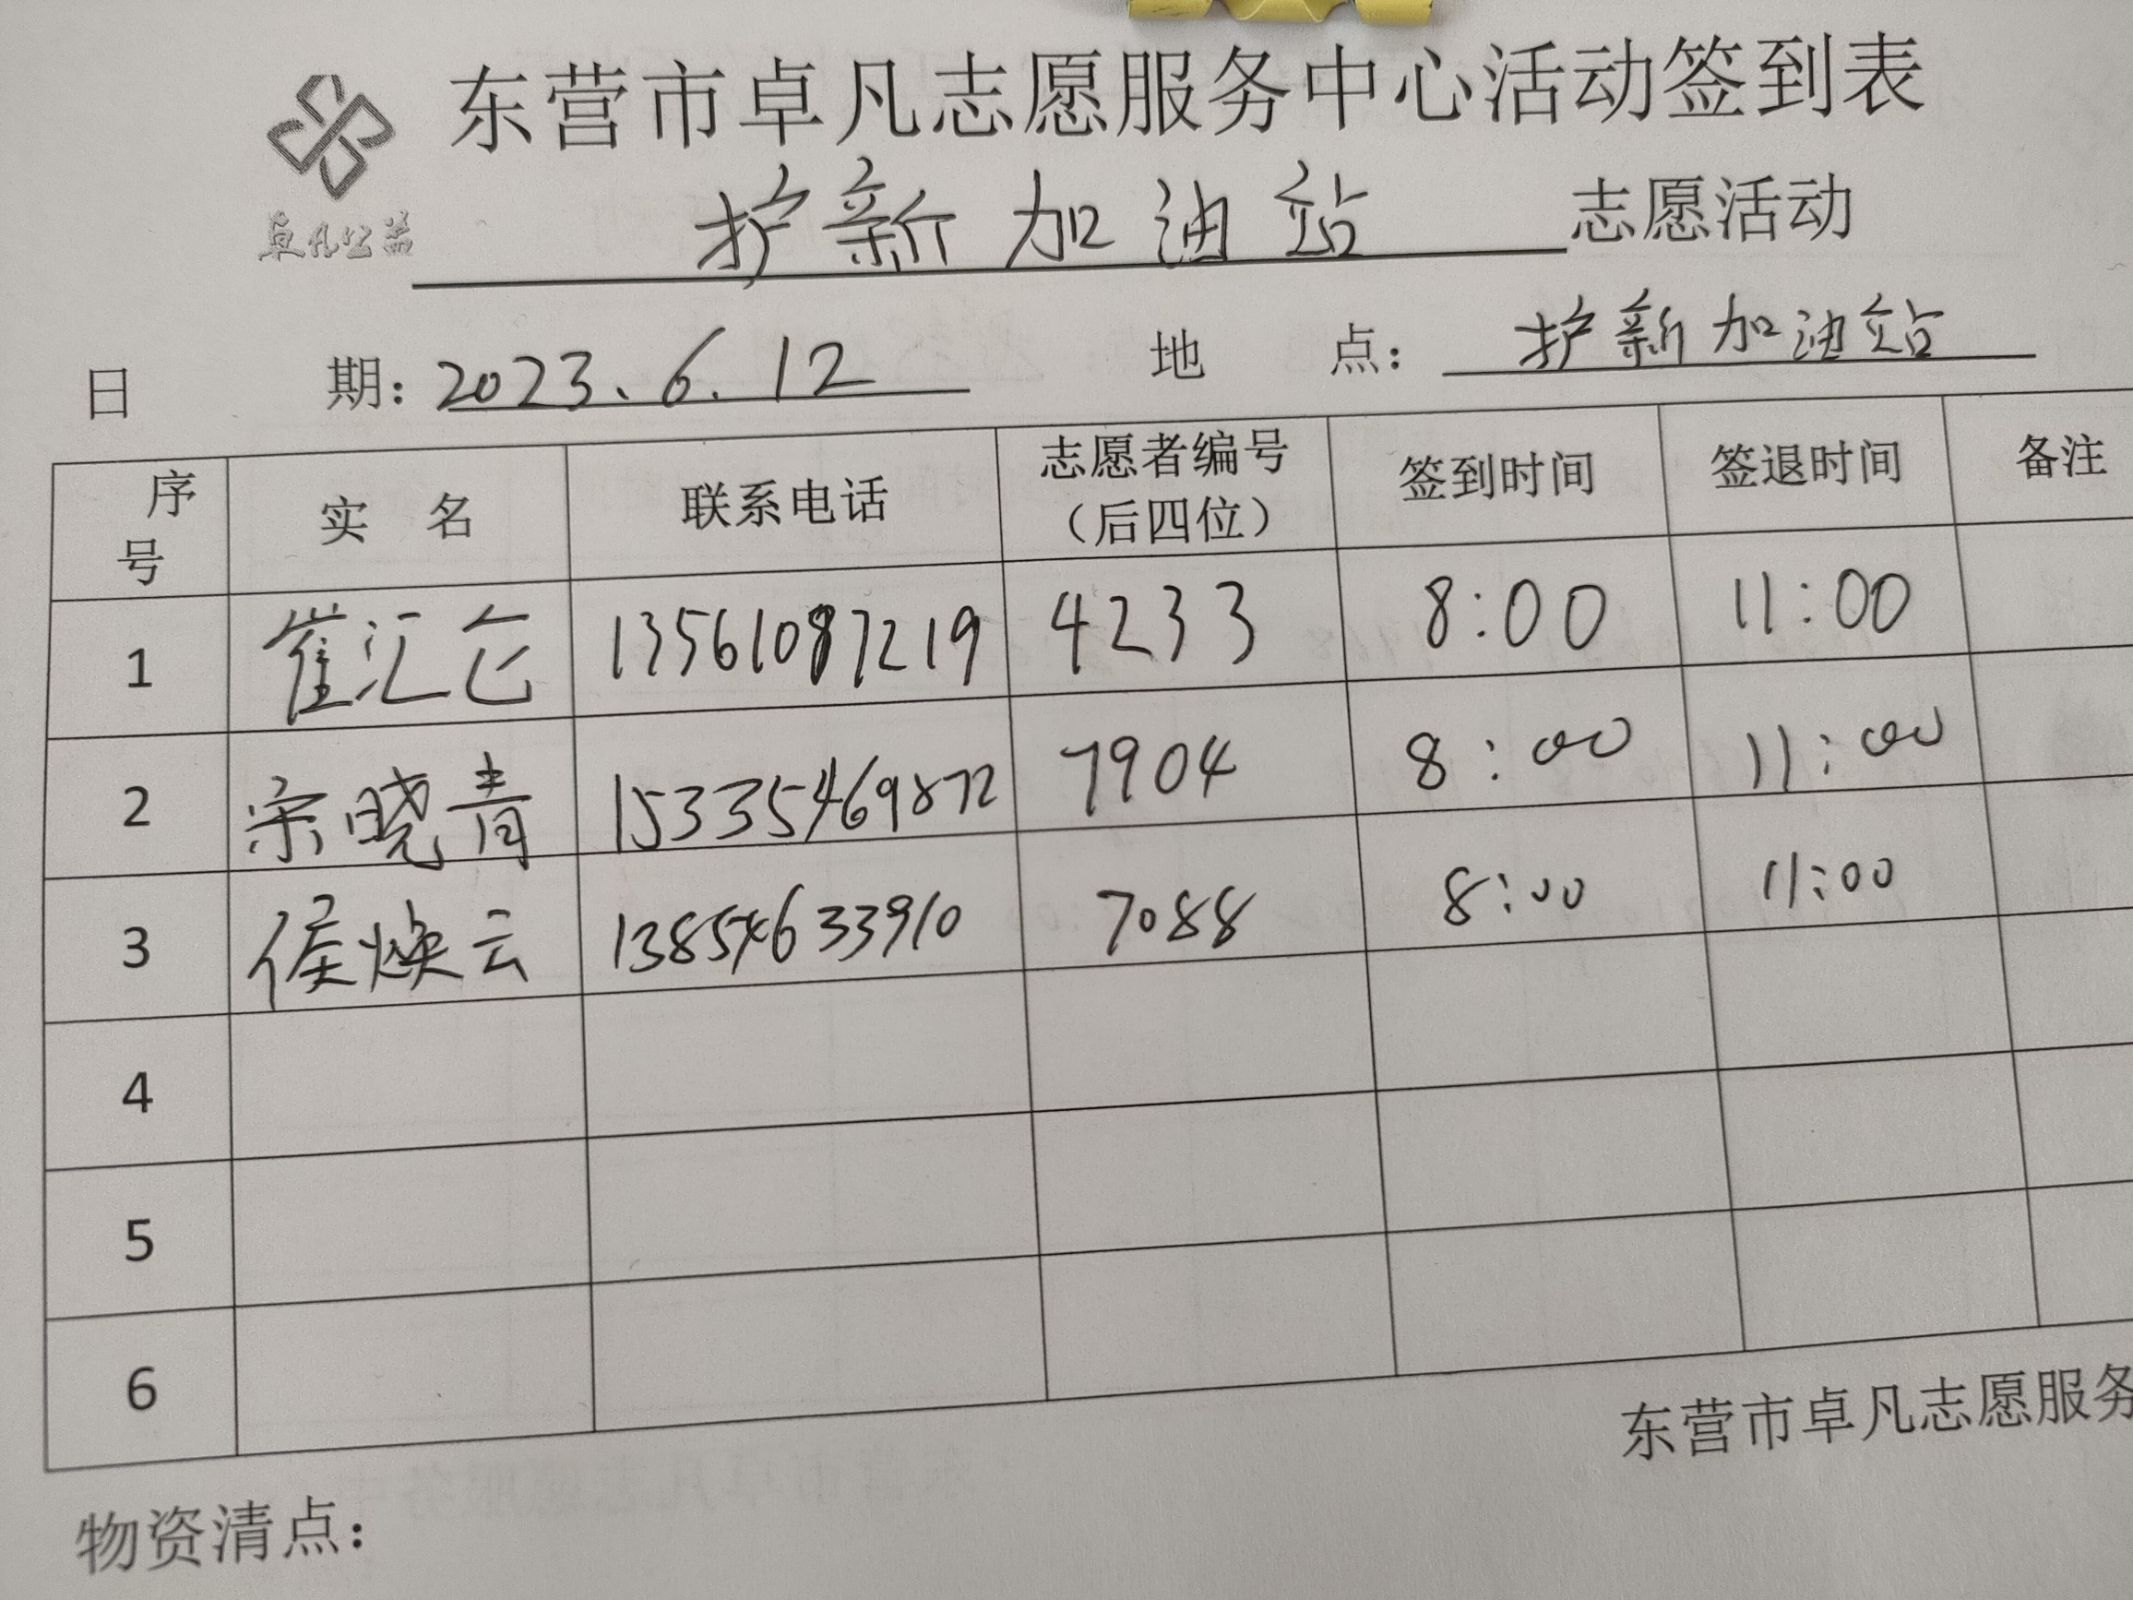 东营市卓凡志愿服务中心活动签到表
卓凡公益
护新加油站 志愿活动
日 期：2023.6.12 地 点：护新加油站
序号 实 名 联系电话 志愿者编号（后四位） 签到时间 签退时间 备注
1 崔汇仑 13561087219 4233 8:00 11:00
2 宗晓青 15335469872 7904 8:00 11:00
3 侯焕云 13854633910 7088 8:00 11:00
4
5
6
东营市卓凡志愿服务
物资清点：